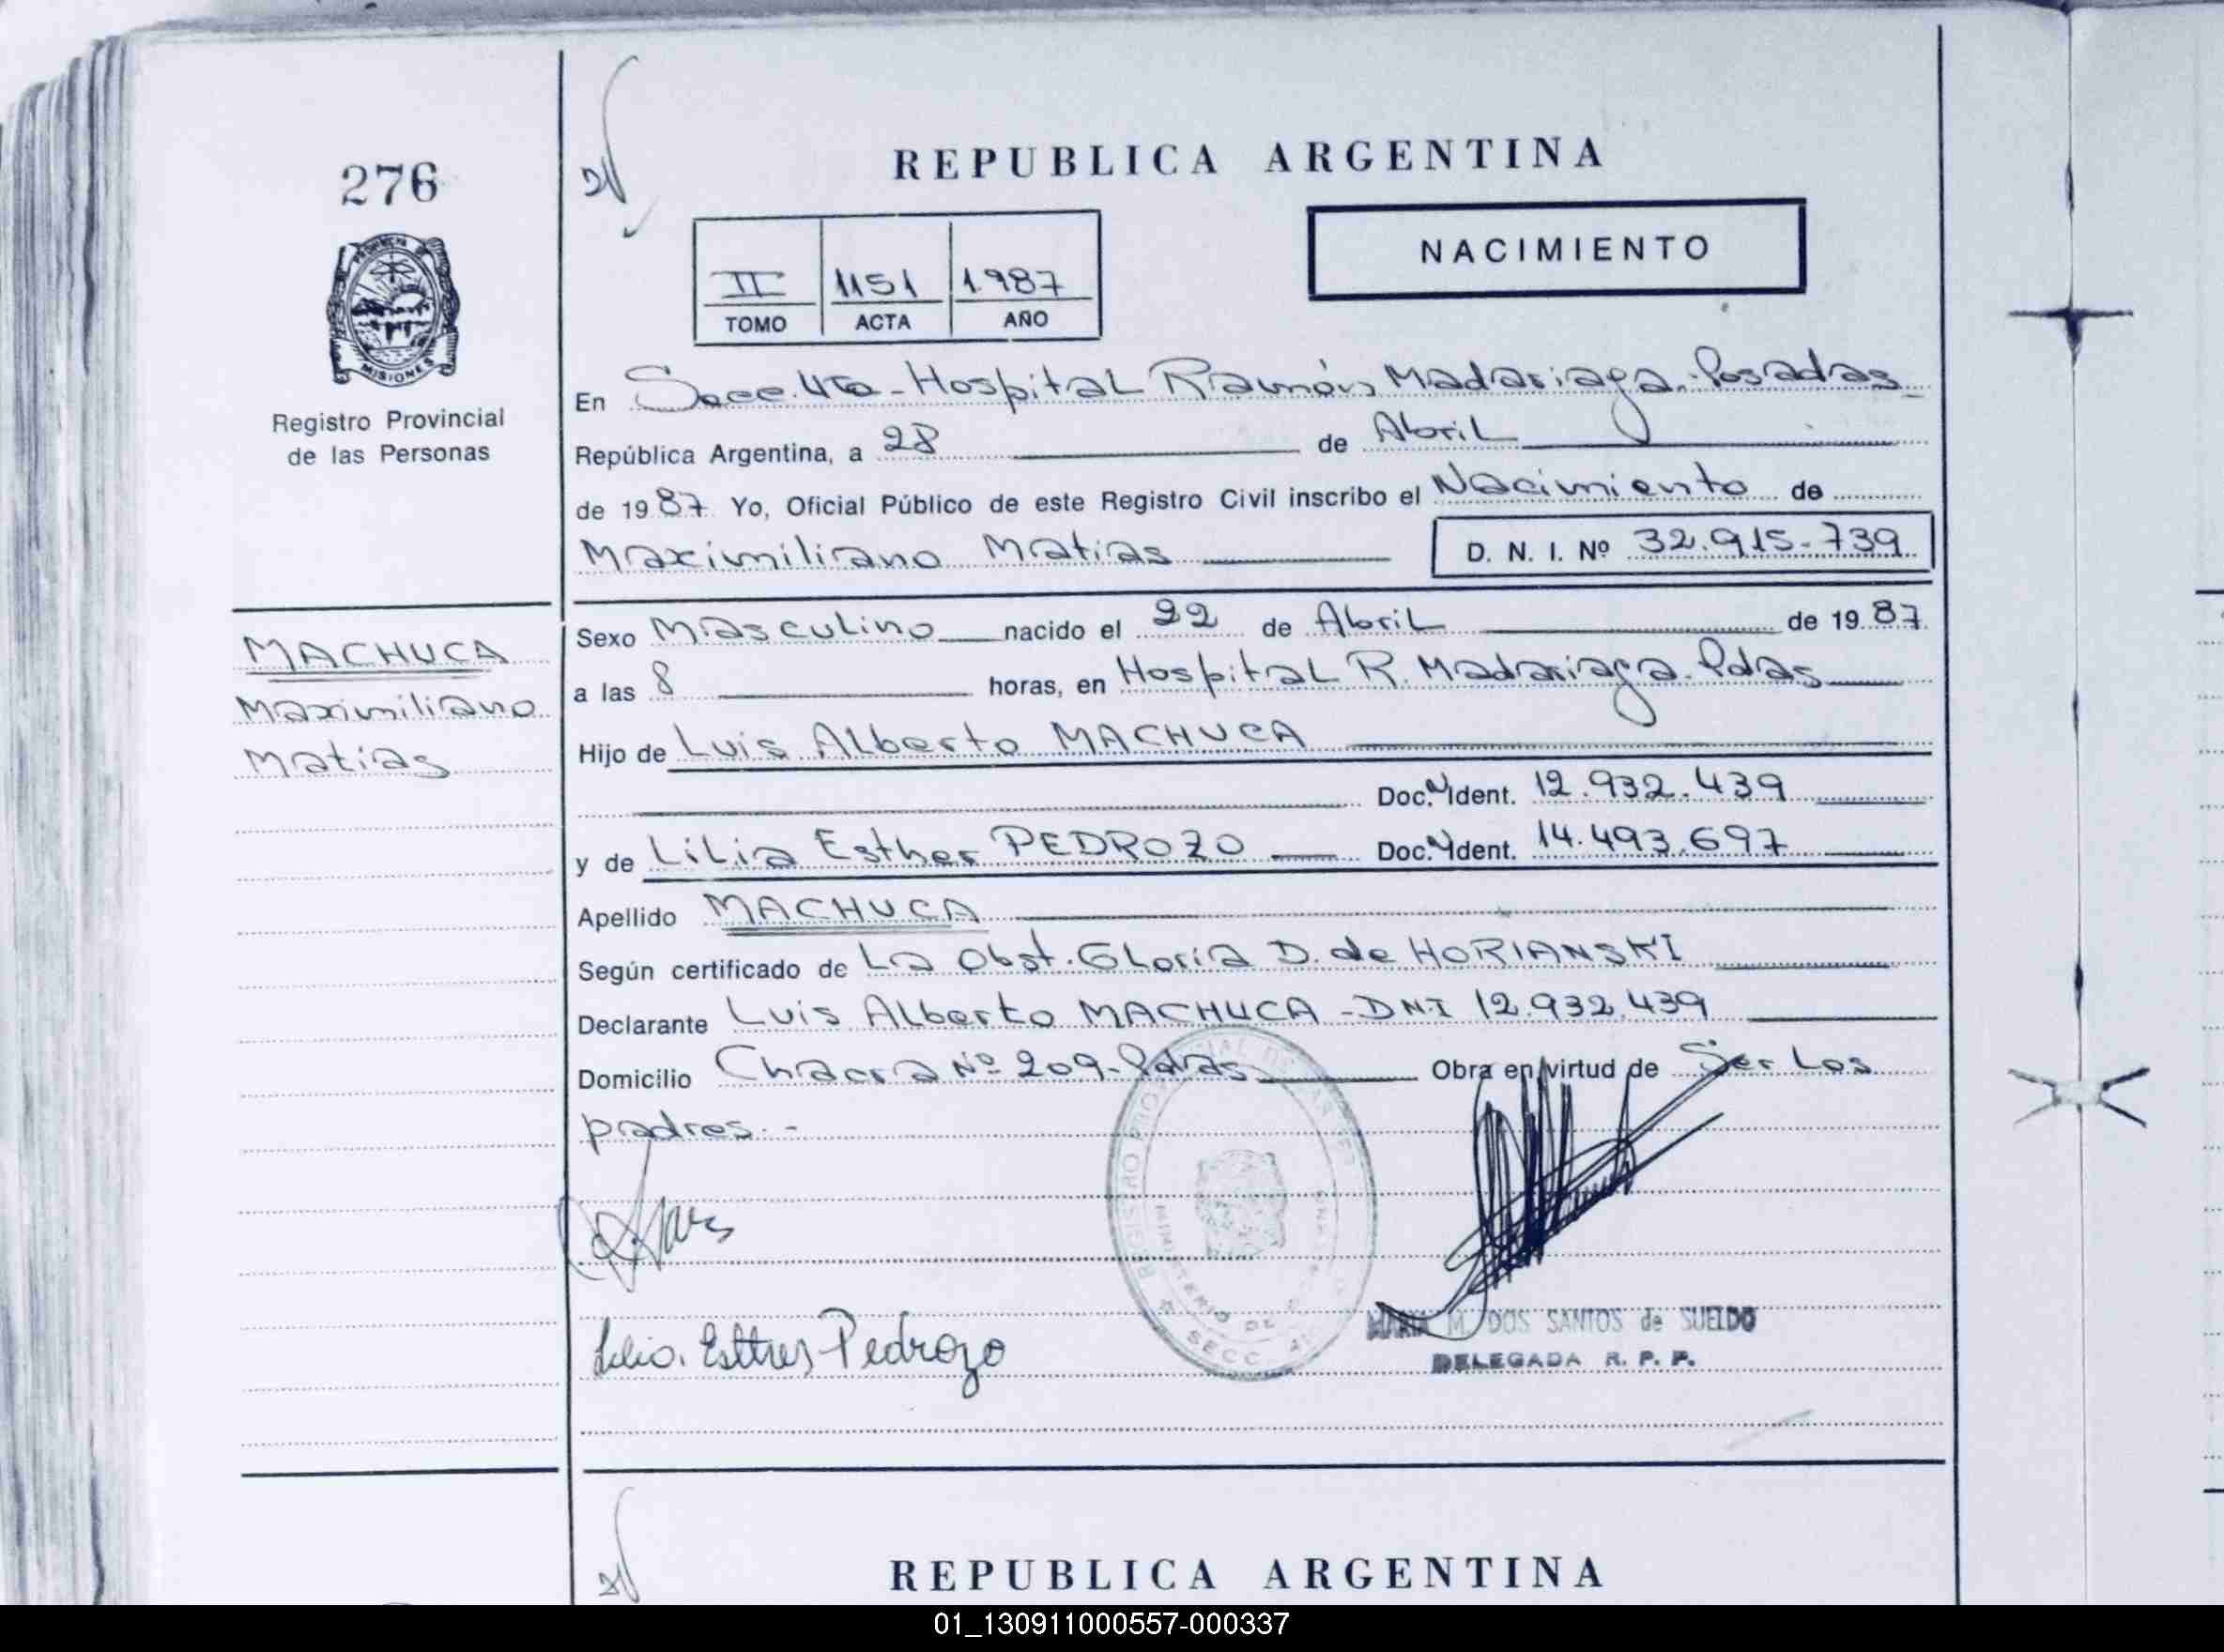 276
PROVINCIA DE
MISIONES
Registro Provincial
de las Personas
MACHUCA
Maximiliano
Matias
REPUBLICA ARGENTINA
NACIMIENTO
II 1151 1.987
TOMO ACTA AÑO
En Secc. 4ta - Hospital Ramón Madariaga - Posadas
República Argentina, a 28 de Abril
de 1987 Yo, Oficial Público de este Registro Civil inscribo el Nacimiento de
Maximiliano Matias D. N. I. Nº 32.915.739
Sexo Masculino nacido el 22 de Abril de 1987
a las 8 horas, en Hospital R. Madariaga - Pdas
Hijo de Luis Alberto MACHUCA
Doc. N Ident. 12.932.439
y de Lilia Esther PEDROZO Doc. N Ident. 14.493.697
Apellido MACHUCA
Según certificado de La Obst. Gloria D. de HORIANSKI
Declarante Luis Alberto MACHUCA - DNI 12.932.439
Domicilio Chacra Nº 209 - Pdas Obra en virtud de Ser Los
padres. -
REGISTRO
MINISTERIO DE
SECC. 4
Lilia Esther Pedrozo
MARIA M. DOS SANTOS de SUELDO
DELEGADA R. P. P.
REPUBLICA ARGENTINA
01_130911000557-000337